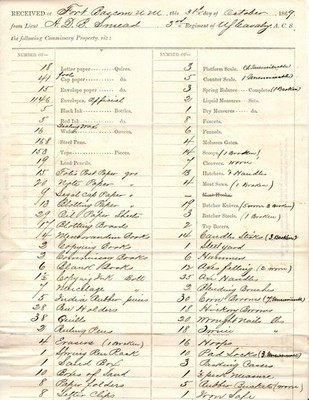 RECEIVED at Fort Bascom N.M., this 31st day of October 1869.
from Lieut A.D.B. Smead 3rd Regiment of US Cavalry A. C. S.
the following Commissary Property, viz:
NUMBER OF—
18 Letter paper Quires.
41 Cap paper do.
15 Envelope paper
1146 Envelopes, Official
5 Black Ink Bottles.
5 Red Ink
16 Sealing Wax Ounces.
168 Steel Pens.
153 Tape Pieces.
19 Lead Pencils.
15 Folio Post Paper qrs
28 Note Paper "
9 Legal Cap Paper "
13 Blotting Paper "
29 Oil Paper Sheets
17 Blotting Boards
4 Memorandum Books
2 Copying Books
3 Commissary Books
6 Blank Books
1½ Copying Ink Bott
7 Mucilage "
5 India Rubber pieces
28 Pen Holders
38 Quills
2 Ruling Pens
4 Erasers (1 broken)
1 Spring Pen Rack
1 Sand Box
10 Boxes of Sand
8 Paper folders
8 Letter Clips
NUMBER OF—
3 Platform Scales
5 Counter Scales
3 Spring Balance Complete (1 Broken)
2 Liquid Measures Sets.
2 Dry Measures do.
8 Faucets.
6 Funnels.
4 Molasses Gates.
4 Scoops (1 Broken)
7 Cleavers (worn)
3 Hatchets, 2 Handles
4 Meat Saws (1 Broken)
19 Butcher Knives
3 Butcher Steels (1 Broken)
2 Tap Borers
16 Candle Sticks
1 Steelyard
6 Hammers
12 Axes felling (2 worn)
25 Axe Handles
2 Blacking Brushes
30 Corn Brooms
18 Hickory Brooms
20 Wrought Nails lbs
18 " "
16 Hoops
10 Pad Locks
3 Packing Cases
1 Peck Measure
5 Rubber Buckets (worn)
1 Iron Safe